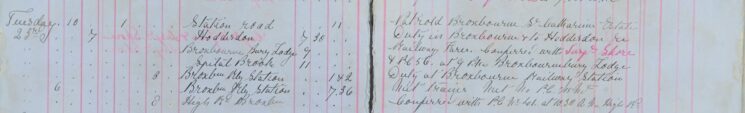 Tuesday 10 . . 1 . . Station road . . 11 . . Patrold Broxbourne St Catharine Estate
23rd . . 7 . . Hoddesdon . . 7 30 . . Duty in Broxbourne & to Hoddesdon re
Broxbourne Bury Lodge 9 . . Railway Fares. Conferred with Sergt Shore
Spital Brook 11 . . & P.C 56. at 9 P.m Broxbournebury Lodge
8 Broxbn Rly Station . . 1 42 Duty at Broxbourne Railway Station
6 . . Broxbn Rly Station . . 7.36 Met Trains Met No P.C
8 High Rd Broxbn Conferred with P.C No at 10.30 A.m High Rd